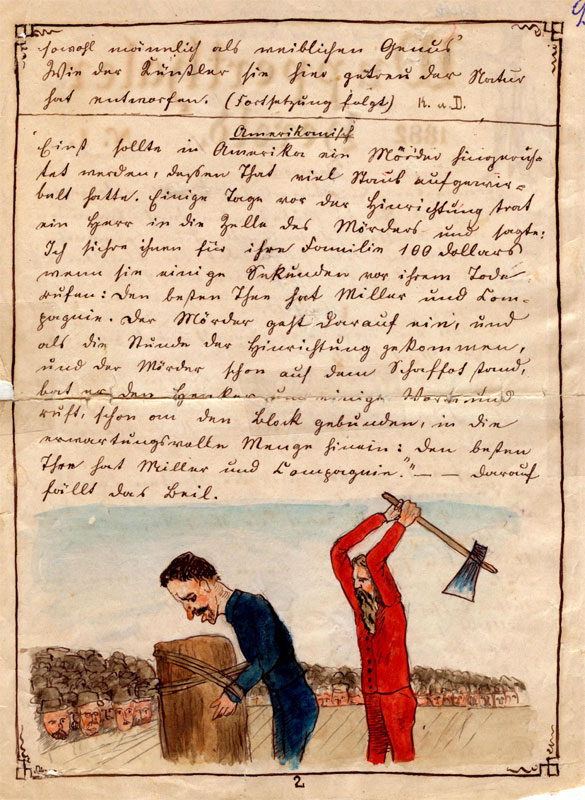 sowohl männlich als weiblichen Genus
Wie der Künstler sie hier getreu der Natur
hat entworfen. (Fortsetzung folgt) K. u. D.
Amerikanisch
Einst sollte in Amerika ein Mörder hingerich-
tet werden, dessen That viel Staub aufgewir-
belt hatte. Einige Tage vor der Hinrichtung trat
ein Herr in die Zelle des Mörders und sagte:
Ich sichre ihnen für ihre Familie 100 dollars
wenn sie einige Sekunden vor ihrem Tode
rufen: Den besten Thee hat Miller und Com-
pagnie. Der Mörder geht darauf ein, und
als die Stunde der Hinrichtung gekommen,
und der Mörder schon auf dem Schaffot stand,
bat er den Henker um einige Worte und
ruft, schon an den Block gebunden, in die
erwartungsvolle Menge hinein: Den besten
Thee hat Miller und Compagnie." — — Darauf
fällt das Beil.
2